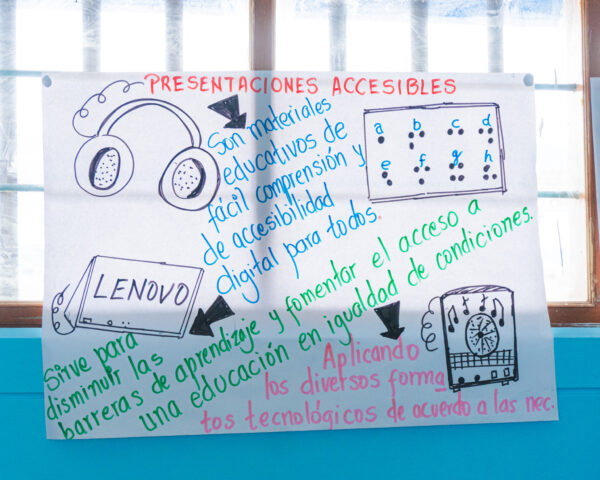 PRESENTACIONES ACCESIBLES
Son materiales
educativos de
fácil comprensión y
de accesibilidad
digital para todos.
a b c d
e f g h
LENOVO
Sirve para
disminuir las
barreras de aprendizaje y fomentar el acceso a
una educación en igualdad de condiciones.
Aplicando
los diversos forma
tos tecnológicos de acuerdo a las nec.